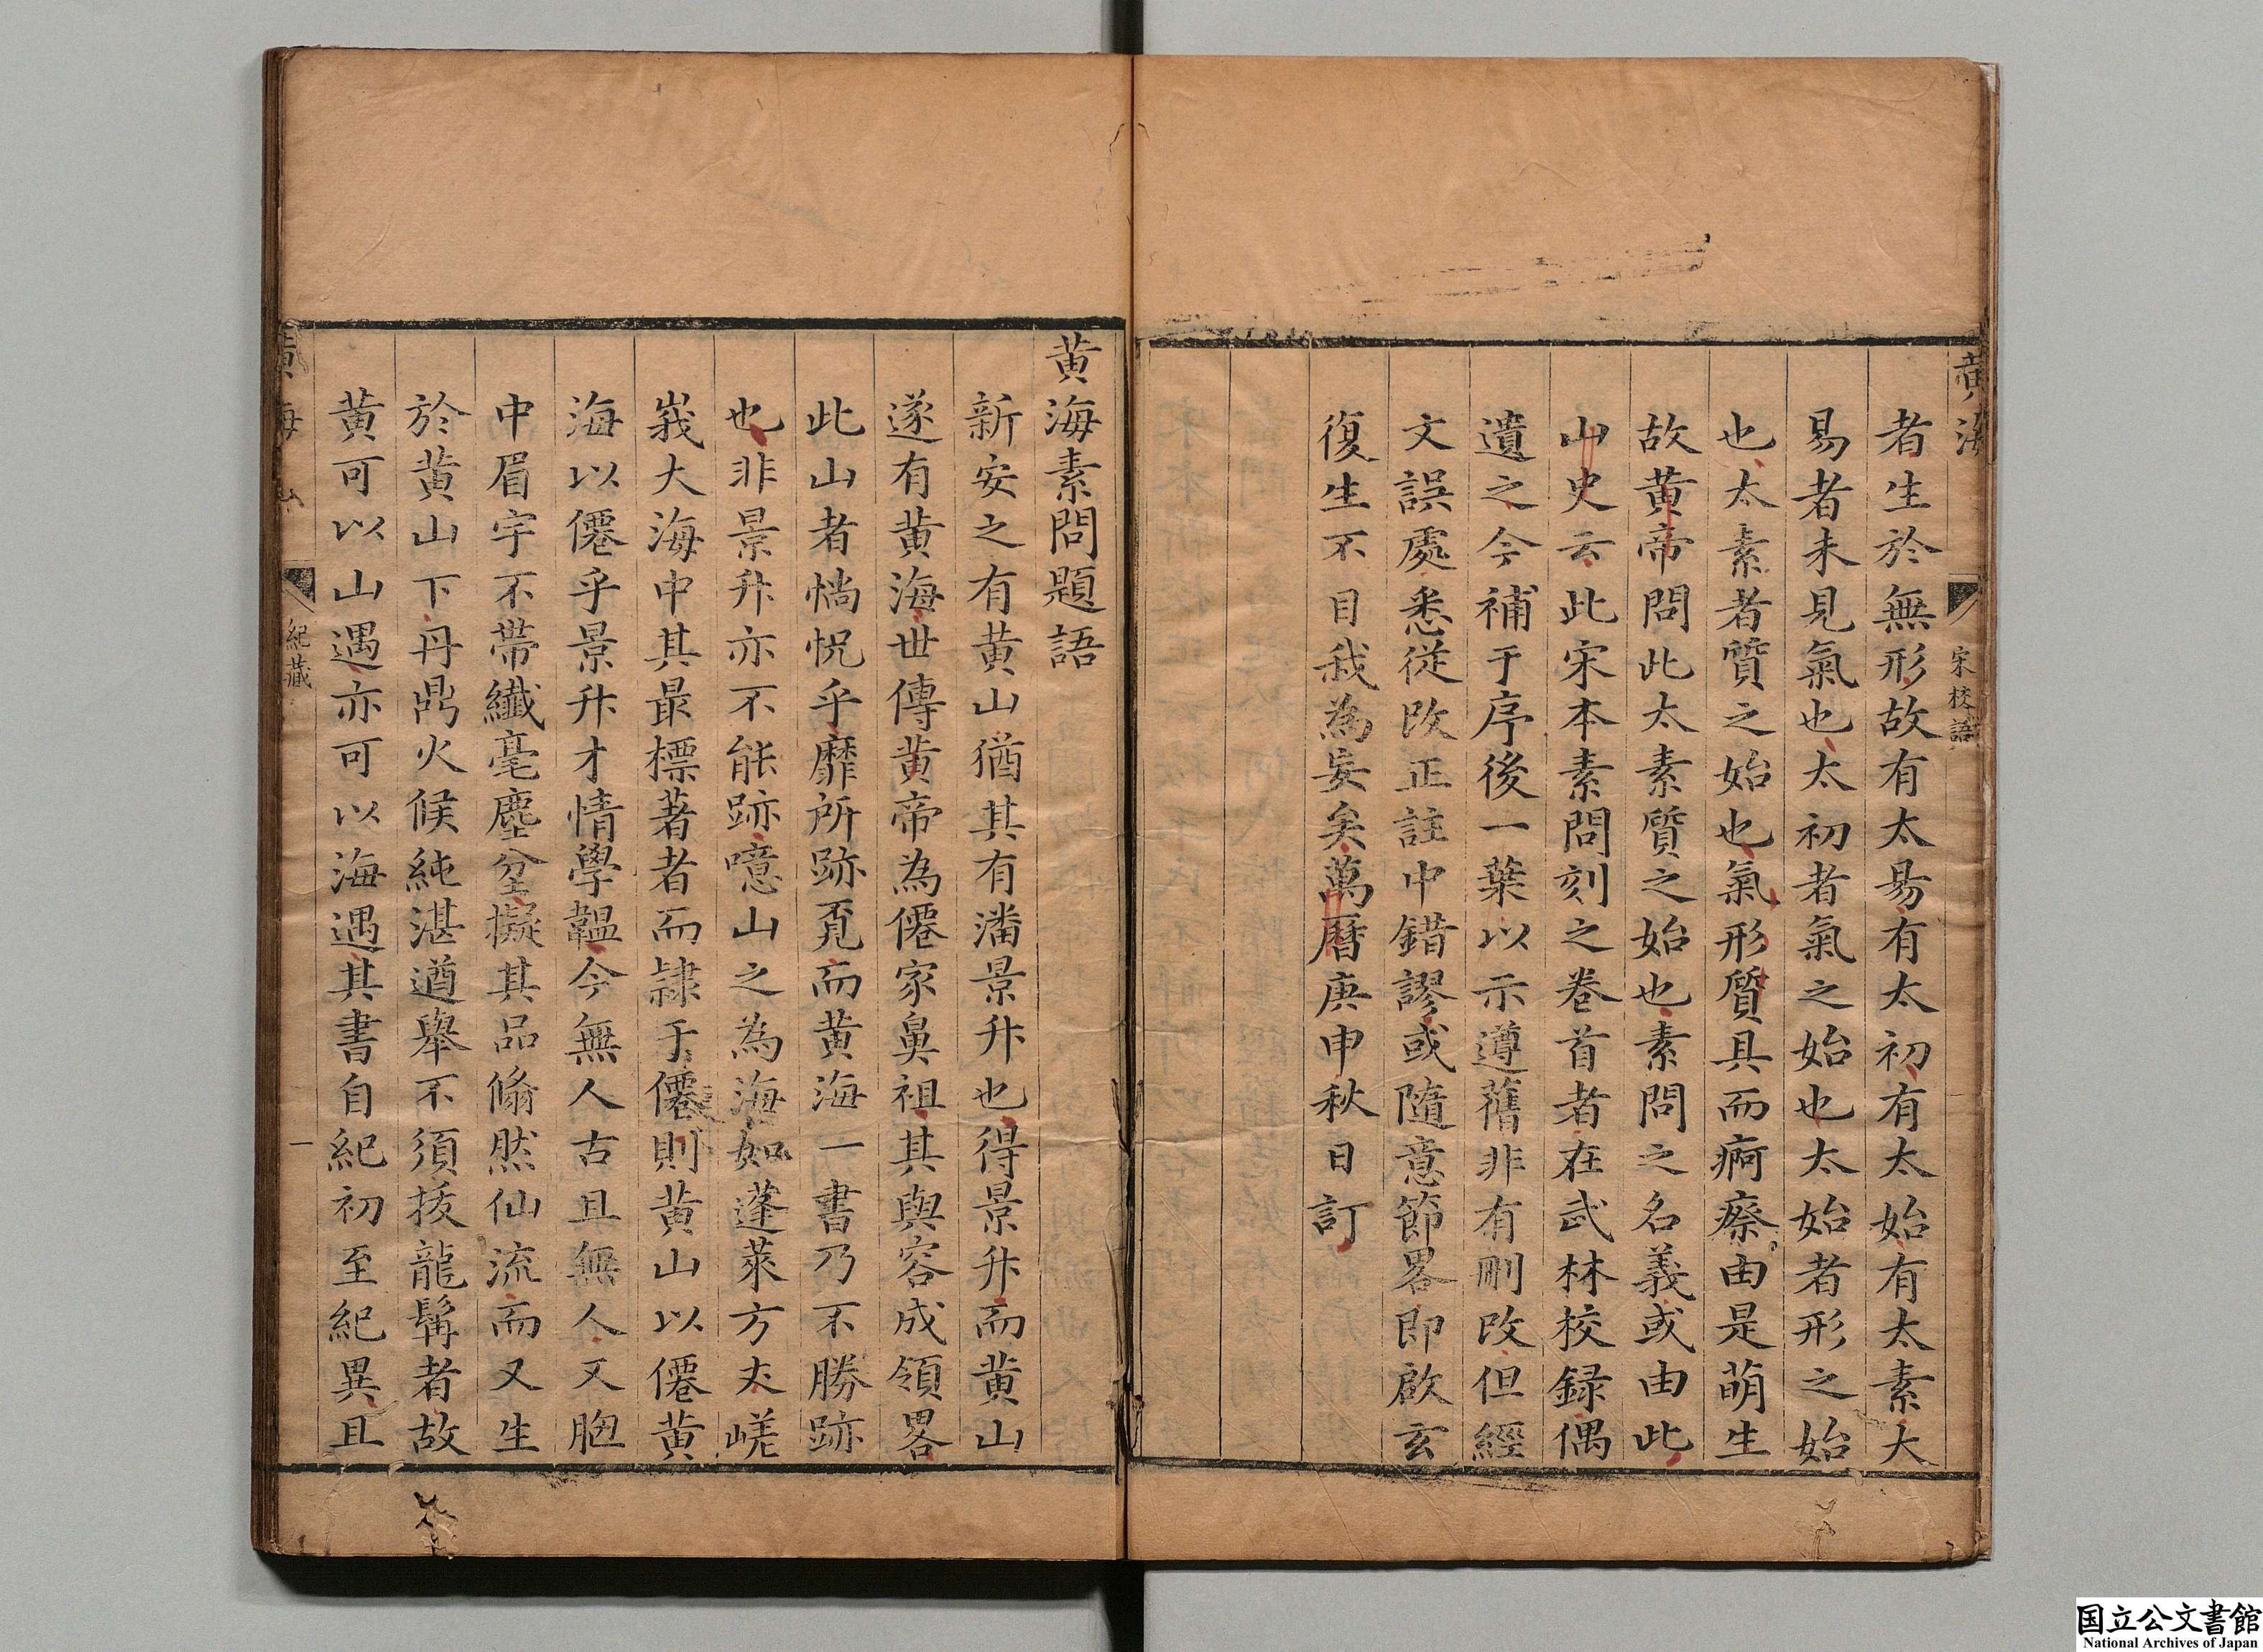 黄海
宋校語
者生於無形故有太易有太初有太始有太素大
易者未見氣也太初者氣之始也太始者形之始
也太素者質之始也氣形質具而痾瘵由是萌生
故黄帝問此太素質之始也素問之名義或由此
山史云此宋本素問刻之卷首者在武林校録偶
遺之今補于序後一葉以示遵舊非有刪改但經
文誤處悉従改正註中錯謬或隨意節畧即啟玄
復生不目我為妄矣萬曆庚申秋日訂
黄海素問題語
新安之有黄山猶其有潘景升也得景升而黄山
遂有黄海世傳黄帝為僊家鼻祖其與容成領畧
此山者惝怳乎靡所跡覔而黄海一書乃不勝跡
也非景升亦不能跡噫山之為海如蓬萊方丈嵯
峩大海中其最標著者而隷于僊則黄山以僊黄
海以僊乎景升才情學韞今無人古且無人又胞
中眉宇不帶纖毫塵坌擬其品翛然仙流而又生
於黄山下丹鼎火候純湛遒舉不須拔龍髯者故
黄可以山遇亦可以海遇其書自紀初至紀異且
黄海
紀藏
一
国立公文書館
National Archives of Japan